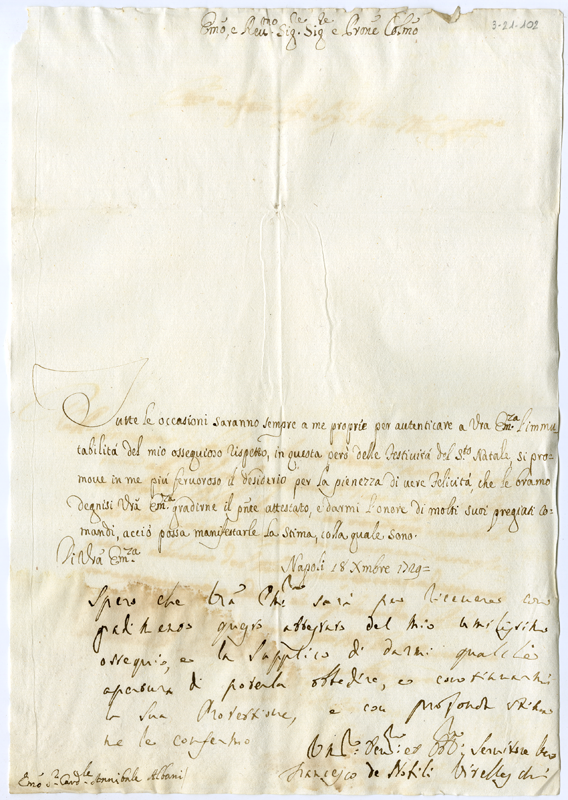 Emo, e Reumo Sige. Sige e Prone Colmo
3-21-102
Tutte le occasioni saranno sempre a me proprie per autenticare a Vra Emza l'immu
tabilitá del mio ossequioso rispetto, in questa peró delle Festivitá del Sto Natale si pro=
move in me piú feruoroso il desiderio per la pienezza di uere Felicitá, che le bramo
degnisi Vrã Emza gradirne il pñte attestato, e darmi l'onore di molti suoi pregiati Co=
mandi, acció possa manifestarle la stima, colla quale sono.
Di Vrã Emza
Napoli 18 Xmbre 1729=
Spero che Vrã Emza sará per riceuere con
gradimento questo attestato del mio umilissimo
ossequio, e la supplico di darmi qualche
apertura di poterla obbedire, e continuarmi
la sua Protettione, e con profonda stima
me le confermo
Servitore Vero
Francesco de Nobili Vitelleschi
Emo Sr. Cardle Annibale Albani